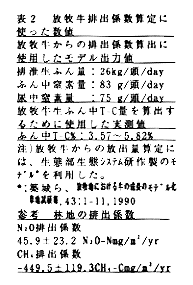 表2 放牧牛排出係数算定に
使った数値
放牧牛からの排出係数算出に
使用したモデル出力値
排泄生ふん量：26kg/頭/day
ふん中窒素量：83 g/頭/day
尿中窒素量 ：75 g/頭/day
放牧牛生ふん中T-C量を算出す
るために使用した実測値
ふん中T-C%：3.57～5.82%
注)放牧牛からの放出量算定に
は、生態部生態システム研作製のモ
デル*を利用した。
*:築城ら、
43:1-11,1990
参考 林地の排出係数
N₂O排出係数
45.9±23.2 N₂O-Nmg/m²/yr
CH₄排出係数
-449.5±119.3CH₄-Cmg/m²/yr